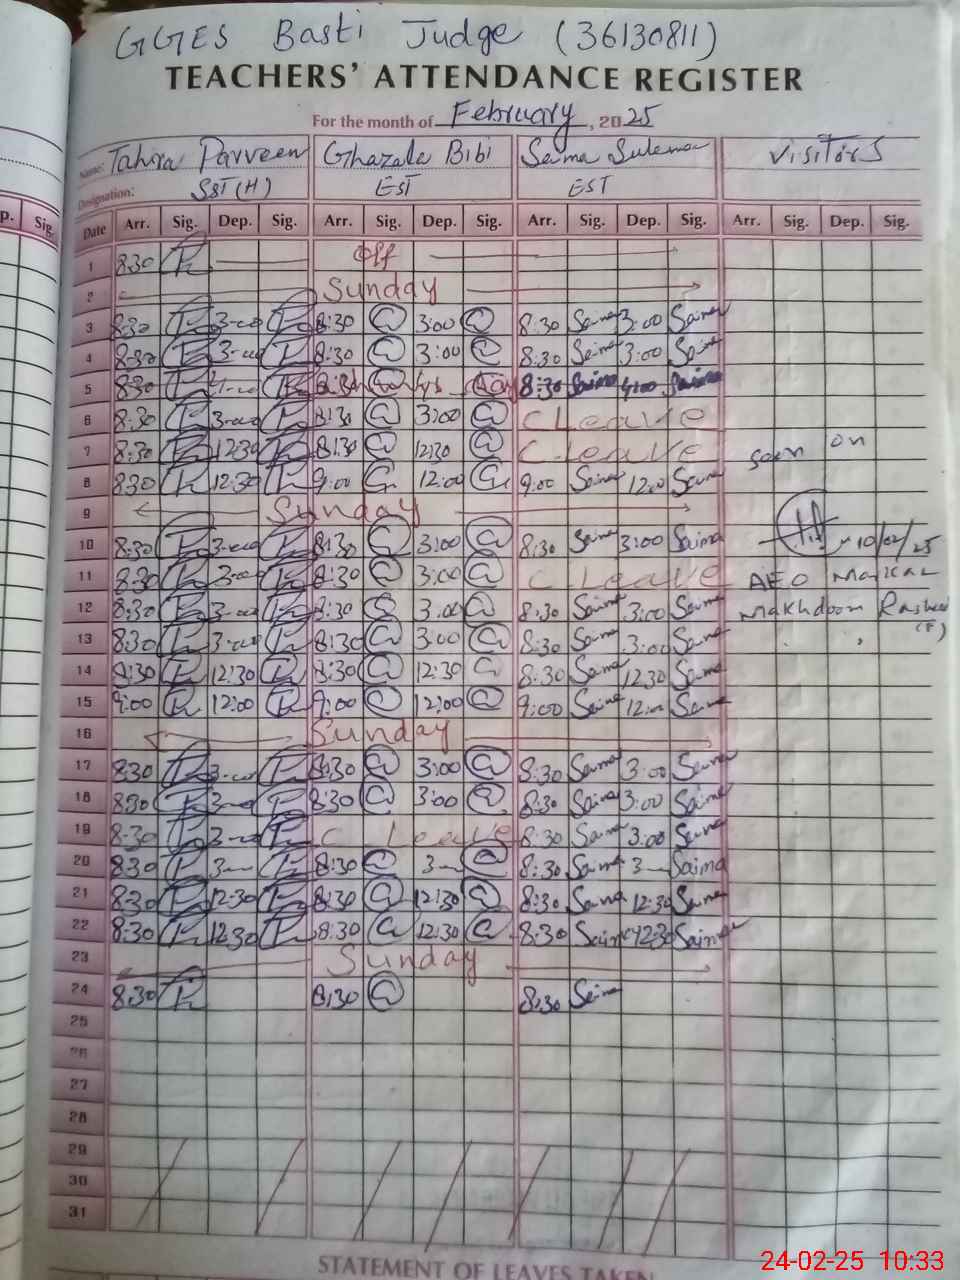 GGES Basti Judge (36130811)
TEACHERS' ATTENDANCE REGISTER
For the month of February, 2025
Name: Tahira Parveen Ghazala Bibi Saima Suleman Visitors
Designation: SST(H) EST EST
p. Sig.
Date Arr. Sig. Dep. Sig. Arr. Sig. Dep. Sig. Arr. Sig. Dep. Sig. Arr. Sig. Dep. Sig.
1 8:30 off
2 Sunday
3 8:30 3-00 8:30 3:00 8:30 Saima 3:00 Saima
4 8:30 3-00 8:30 3:00 8:30 Saima 3:00 Saima
5 8:30 8:30 Saima 4:00 Saima
6 8:30 3-00 8:30 3:00 C Leave
7 8:30 12:30 8:30 12:30 C Leave seen on
8 8:30 12:30 9:00 12:00 9:00 Saima 12:00 Saima
9 Sunday
10 8:30 3-00 8:30 3:00 8:30 Saima 3:00 Saima 10/02/25
11 8:30 3-00 8:30 3:00 C Leave AEO Markaz
12 8:30 3-00 8:30 3:00 8:30 Saima 3:00 Saima Makhdoom Rasheed
13 8:30 3-00 8:30 3:00 8:30 Saima 3:00 Saima (F)
14 8:30 12:30 8:30 12:30 8:30 Saima 12:30 Saima
15 9:00 12:00 9:00 12:00 9:00 Saima 12:00 Saima
16 Sunday
17 8:30 3-00 8:30 3:00 8:30 Saima 3:00 Saima
18 8:30 3-00 8:30 3:00 8:30 Saima 3:00 Saima
19 8:30 3-00 C Leave 8:30 Saima 3:00 Saima
20 8:30 3- 8:30 3- 8:30 Saima 3- Saima
21 8:30 12:30 8:30 12:30 8:30 Saima 12:30 Saima
22 8:30 12:30 8:30 12:30 8:30 Saima 12:30 Saima
23 Sunday
24 8:30 8:30 8:30 Saima
25
26
27
28
29
30
31
STATEMENT OF LEAVES TAKEN
24-02-25 10:33